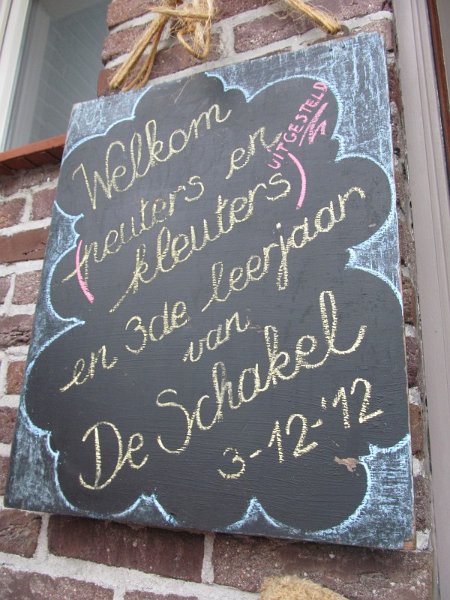 Welkom
(peuters en
kleuters)
UITGESTELD
en 3de leerjaar
van
De Schakel
3-12-'12